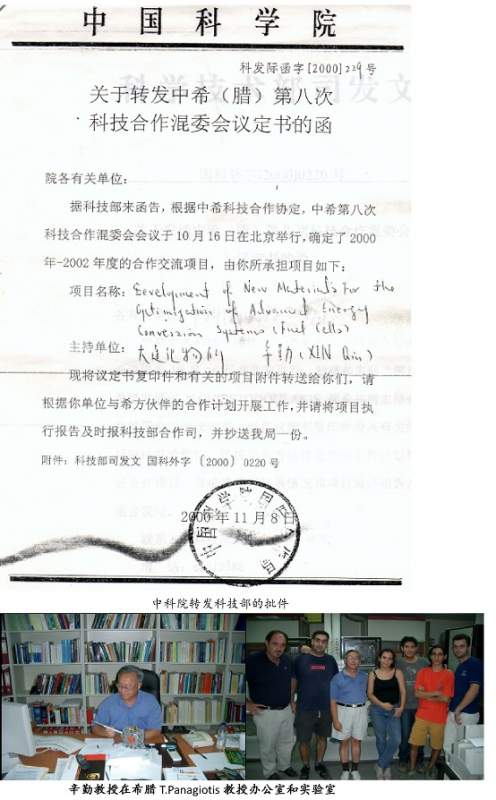 中国科学院
科发际函字[2000]229号
关于转发中希（腊）第八次
科技合作混委会议定书的函
院各有关单位：
据科技部来函告，根据中希科技合作协定，中希第八次
科技合作混委会会议于10月16日在北京举行，确定了2000
年-2002年度的合作交流项目，由你所承担项目如下：
项目名称：Development of New Materials For the
Optimization of Advanced Energy
Conversion Systems (Fuel Cells)
主持单位：大连化物所 辛勤（XIN Qin）
现将议定书复印件和有关的项目附件转送给你们，请
根据你单位与希方伙伴的合作计划开展工作，并请将项目执
行报告及时报科技部合作司，并抄送我局一份。
附件：科技部司发文 国科外字〔2000〕0220号
2000年11月8日
中科院转发科技部的批件
辛勤教授在希腊 T.Panagiotis 教授办公室和实验室